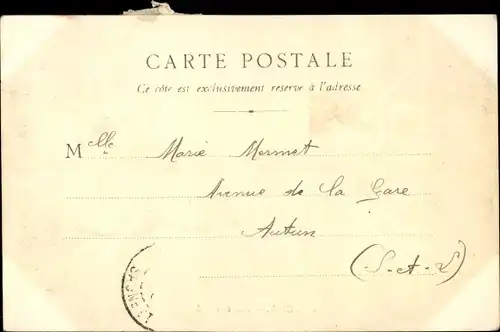 CARTE POSTALE
Ce côté est exclusivement réservé à l'adresse
Mlle Marie Mermet
Avenue de la Gare
Autun
(S-et-L)